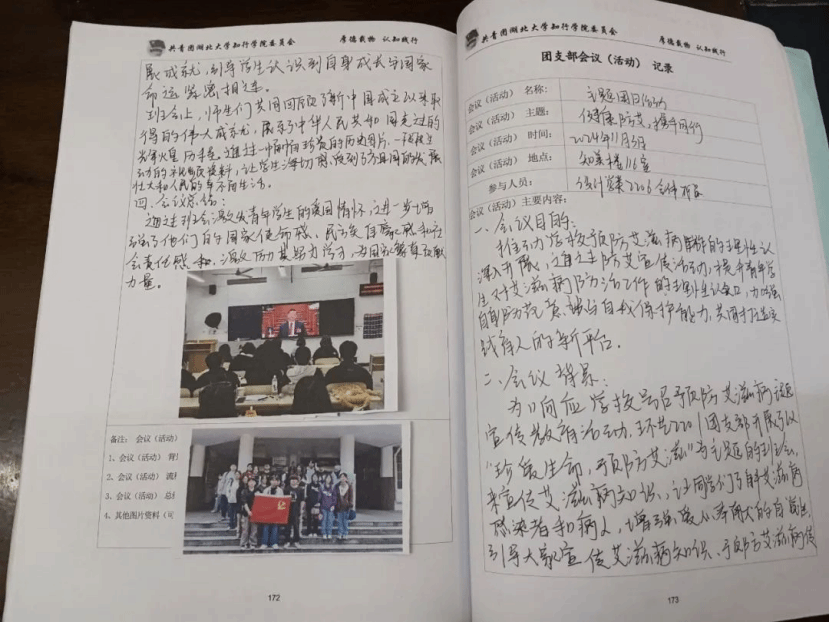 共青团湖北大学知行学院委员会 厚德载物 认知践行
展成就,引导学生认识到自身成长与国家
命运紧密相连。
班会上,师生们共同回顾了新中国成立以来取
得的伟大成就,展示了中华人民共和国走过的
光辉历程。通过一幅幅珍贵的历史图片、一段段生
动的视频资料,让学生深切感受到了祖国的发展
壮大和人民的幸福生活。
四、会议总结:
通过班会激发青年学生的爱国情怀,进一步增
强了他们的国家使命感、民族自豪感和社
会责任感和,激励努力学习,为国家繁荣贡献
力量。
备注: 会议(活动)
1、会议(活动) 背
2、会议(活动) 流
3、会议(活动) 总
4、其他图片资料(可
172
共青团湖北大学知行学院委员会 厚德载物 认知践行
团支部会议(活动) 记录
会议(活动) 名称: 主题团日活动
会议(活动) 主题: 健康防艾,携手同行
会议(活动) 时间: 2024年11月5日
会议(活动) 地点: 116室
参与人员: 全体成员
会议(活动)主要内容:
一、会议目的:
推动学校预防艾滋病 的理性认
深入开展,通过主 防艾宣传活动,提升青年学
生对艾滋病防治工作的理性认识,加强
自身防范意识与自我保护能力,共同打造实
践育人的新平台。
二、会议背景:
为响应学校号召预防艾滋病
宣传教育活动,环艺2201团支部开展了以
“珍爱生命,预防艾滋”为主题的班会,
来宣传艾滋病知识,让同学们了解艾滋病
感染者和病人,增强 的自
引导大家宣传艾滋病知识、预防艾滋病传
173